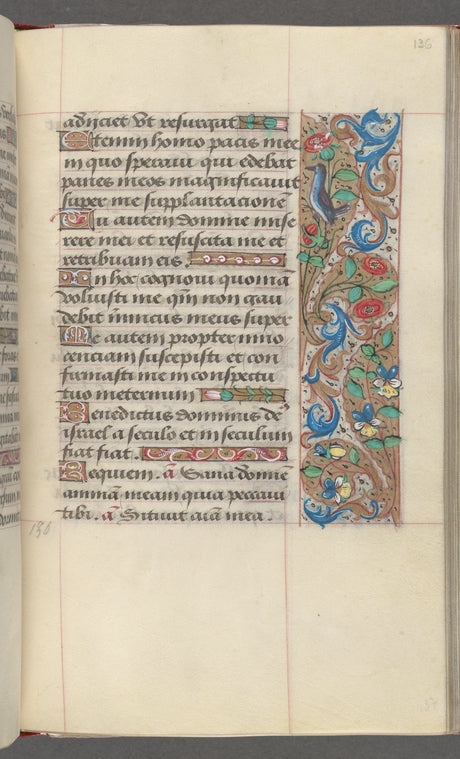 136
adijciet vt resurgat
Etenim homo pacis mee
in quo speraui qui edebat
panes meos magnificauit
super me supplantacione
Tu autem domine mise
rere mei et resuscita me et
retribuam eis.
In hoc cognoui quonia
voluisti me qm non gau
debit inimicus meus super
Me autem propter inno
centiam suscepisti et con
firmasti me in conspectu
tuo ineternum
Benedictus dominus de
israel a seculo et in seculum
fiat fiat.
Requiem. a Sana domine
animam meam quia peccaui
tibi. a Sitiuit aia mea.
136
137